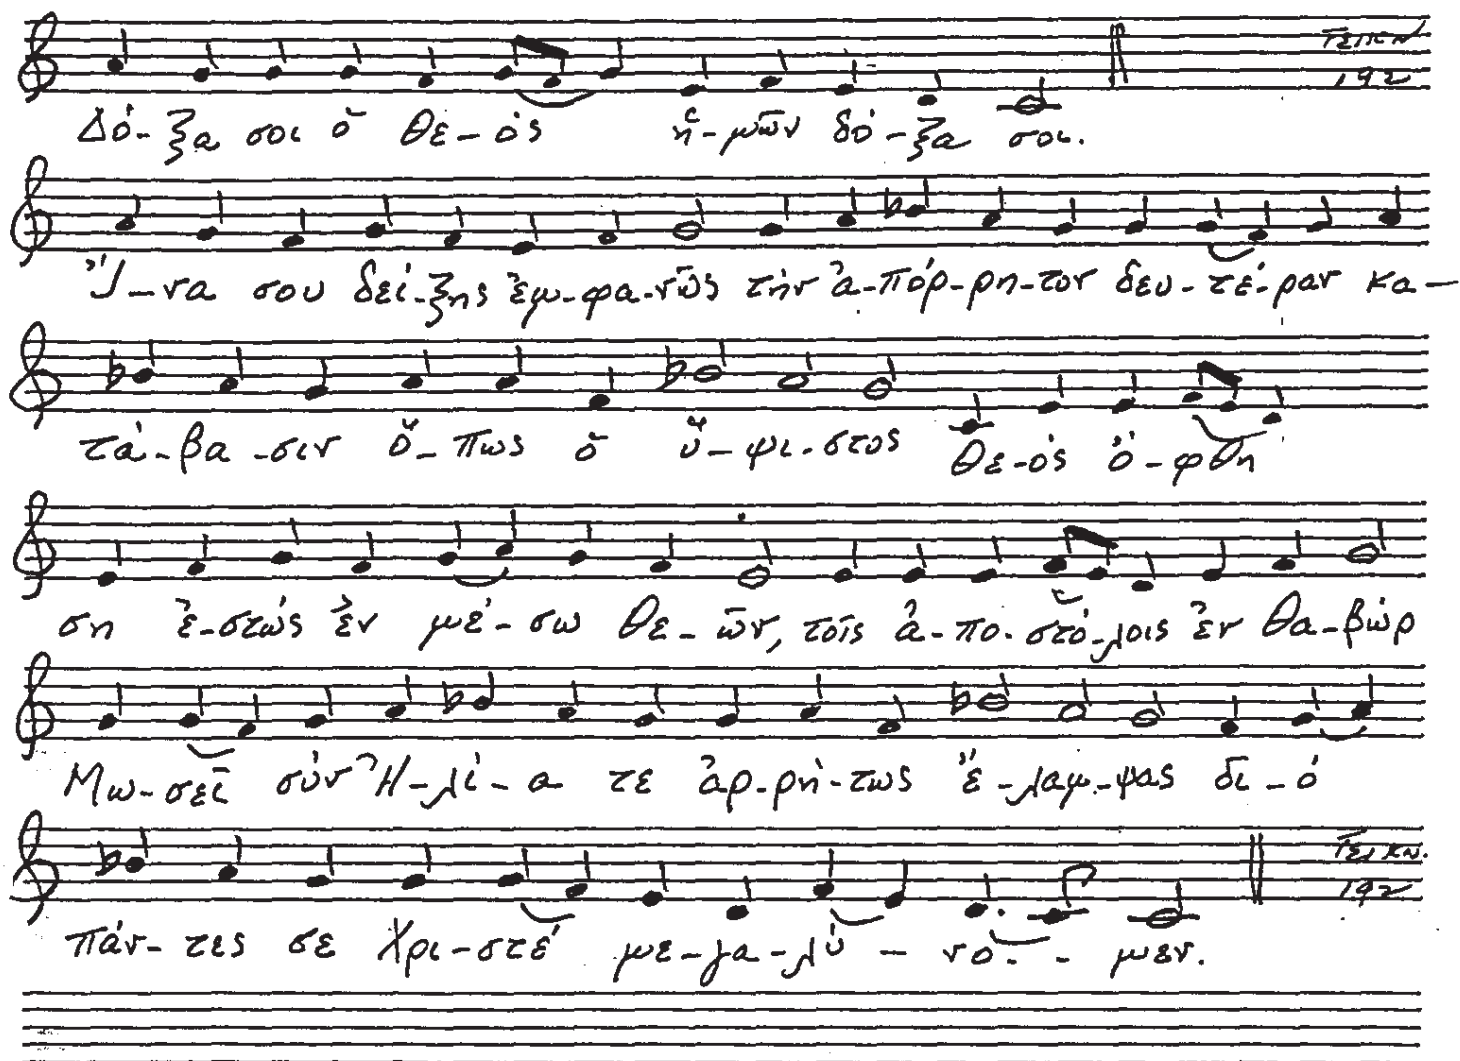 Δό-ξα σοι ὁ Θε-ός ἡ-μῶν δό-ξα σοι.
192
Ἵ-να σου δεί-ξης ἐμ-φα-νῶς τὴν ἀ-πόρ-ρη-τον δευ-τέ-ραν κα-
τά-βα-σιν ὅ-πως ὁ ὕ-ψι-στος Θε-ὸς ὀ-φθη
ση ἐ-στὼς ἐν μέ-σω Θε-ῶν, τοῖς ἀ-πο-στό-λοις ἐν Θα-βὼρ
Μω-σεῖ σὺν Ἠ-λί-α τε ἀρ-ρή-τως ἔ-λαμ-ψας δι-ό
πάν-τες σε Χρι-στέ με-γα-λύ-νο--μεν.
192